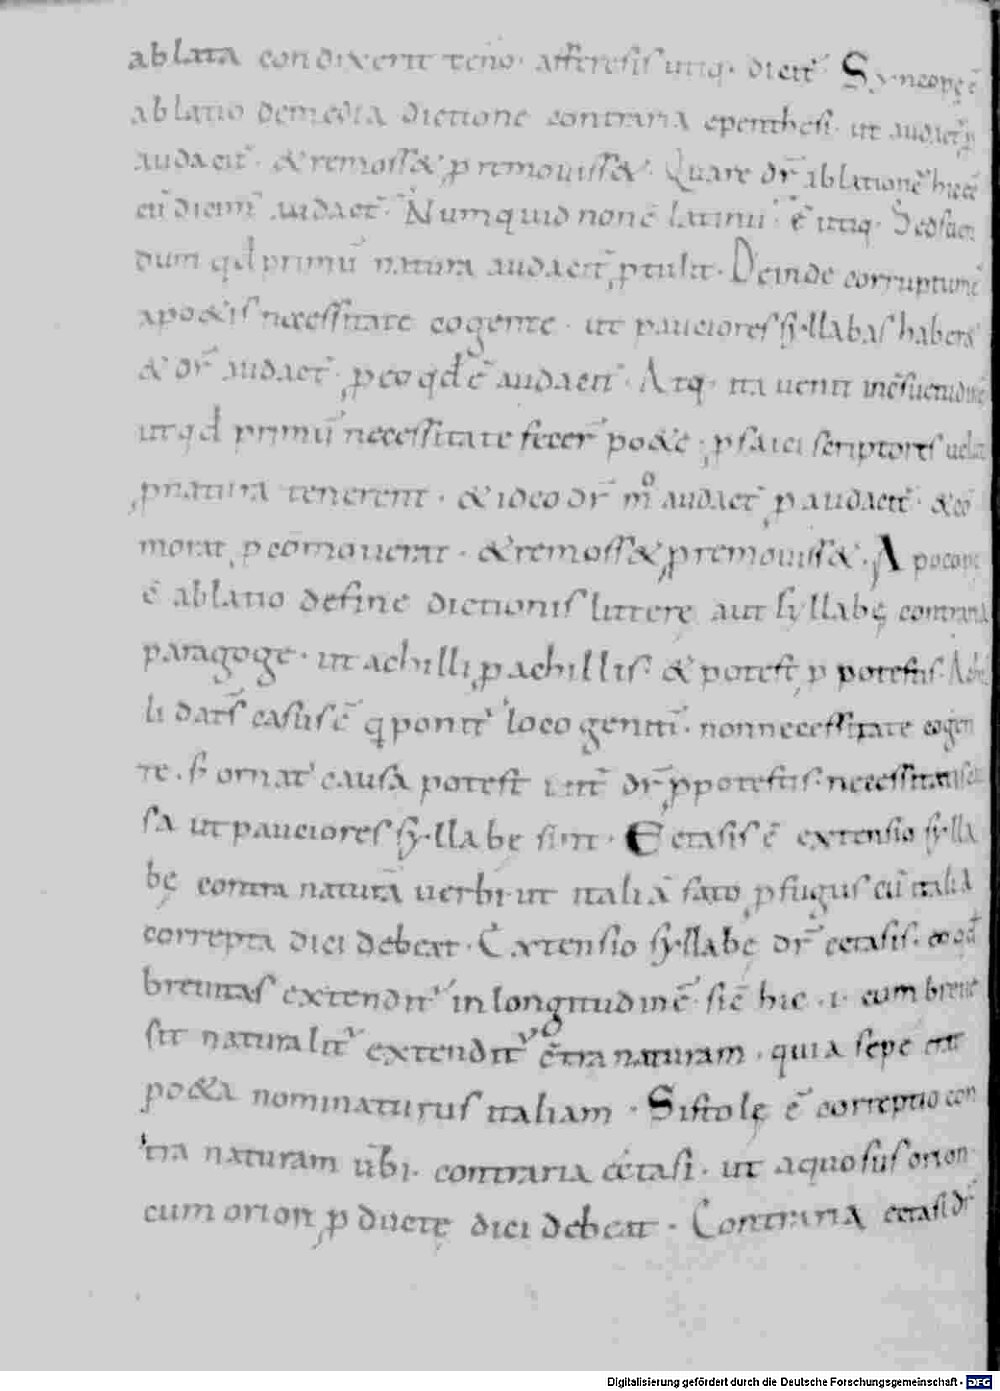 ablata con dixerit teno· afferesis utiq· dicit᷑· Syncope ē
ablatio de media dictione contraria epenthesi· ut audact᷑ ꝓ
audacit᷑· & remoss& ꝓ remouiss&· Quare dr̄ ablationē hic eē
cū dicim᷑ audact᷑· Numquid non ē latinū· ē utiq· Sed
dum qd primū natura audacit᷑ ꝓtulit· Deinde corruptionē
apo&is necessitate cogente· ut pauciores syllabas haber&
& dr̄ audact᷑· ꝓ eo qd ē audacit᷑· Atq· ita uenit in c̄suetudinē
ut qd primū necessitate fecer̄ po&ę· ꝓsaici scriptores uelut
ꝓ natura tenerent· & ideo dr̄ mº audact᷑ ꝓ audacit᷑· & cō
morat ꝓ cōmouerat· & remoss& ꝓ remouiss&· Apocope
ē ablatio de fine dictionis litterę aut syllabę contraria
paragoge· ut achilli ꝓ achillis· & potest ꝓ potestis·
li dat̄s casus ē q ponit᷑ loco genit̄i· non necessitate cogen
te· s; ornat᷑ causa potest dr̄ ꝓ potestis· necessitatis
sa ut pauciores syllabe sint· Ectasis ē extensio sylla
bę contra naturā uerbi· ut italiā fato ꝓfugus cū italia
correpta dici debeat· Extensio syllabę dr̄ ectasis· eo qd
breuitas extendit᷑ in longitudinē· sic̄ hic ·i· cum breue
sit naturalit᷑ extendit᷑ c̄tra naturam· quia sepe erat
po&a nominaturus italiam· Sistole ē correptio con
tra naturam ūbi· contraria ectasi· ut aquosus orion
cum orion ꝓducte dici debeat· Contraria ectasi dr̄